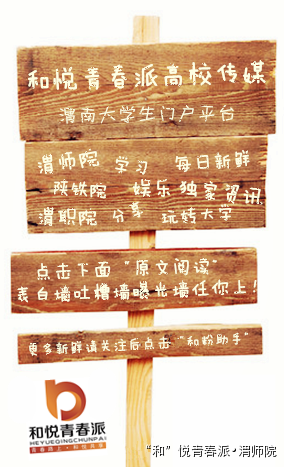 和悦青春派高校传媒
渭南大学生门户平台
渭师院 学习 每日新鲜
陕铁院 娱乐 独家资讯
渭职院 分享 玩转大学
点击下面“原文阅读”
表白墙吐槽墙曝光墙任你上！
更多新鲜请关注后点击“和粉助手”
和悦青春派
HEYUEQINGCHUNPAI
“和”悦青春派·渭师院